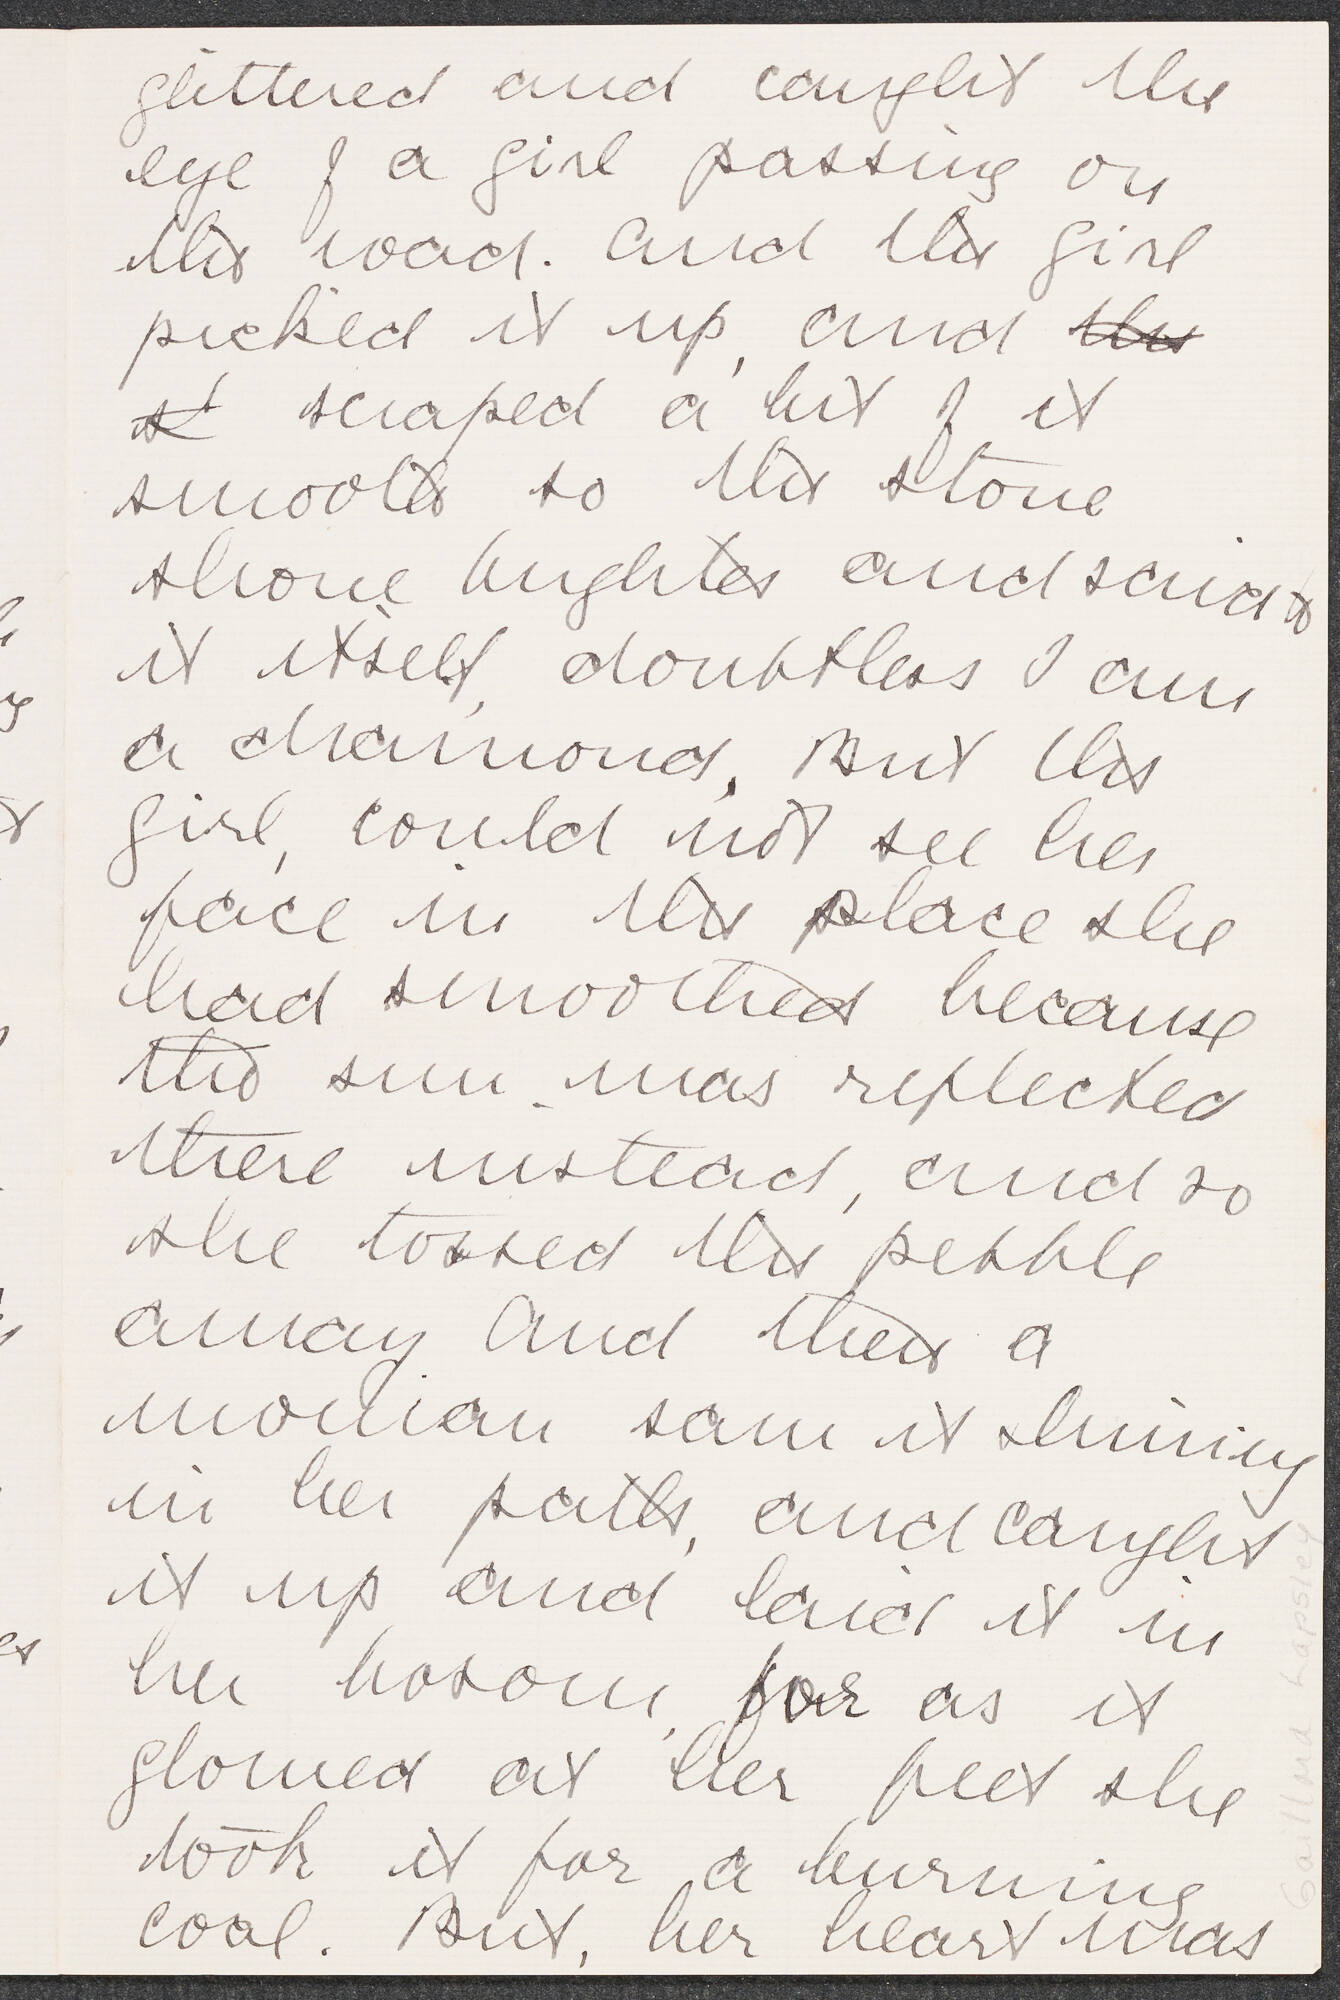 glittered and caught the
eye of a girl passing on
the road. And the girl
picked it up, and the
st scraped a bit of it
smooth so the stone
shone brighter and said to
it itself, doubtless I am
a diamond. But the
girl, could not see her
face in the place she
had smoothed because
the sun was reflected
there instead, and so
she tossed the pebble
away And then a
woman saw it shining
in her path, and caught
it up and laid it in
her bosom, for as it
glowed at her feet she
took it for a burning
coal. But, her heart was
Gaillard Lapsley